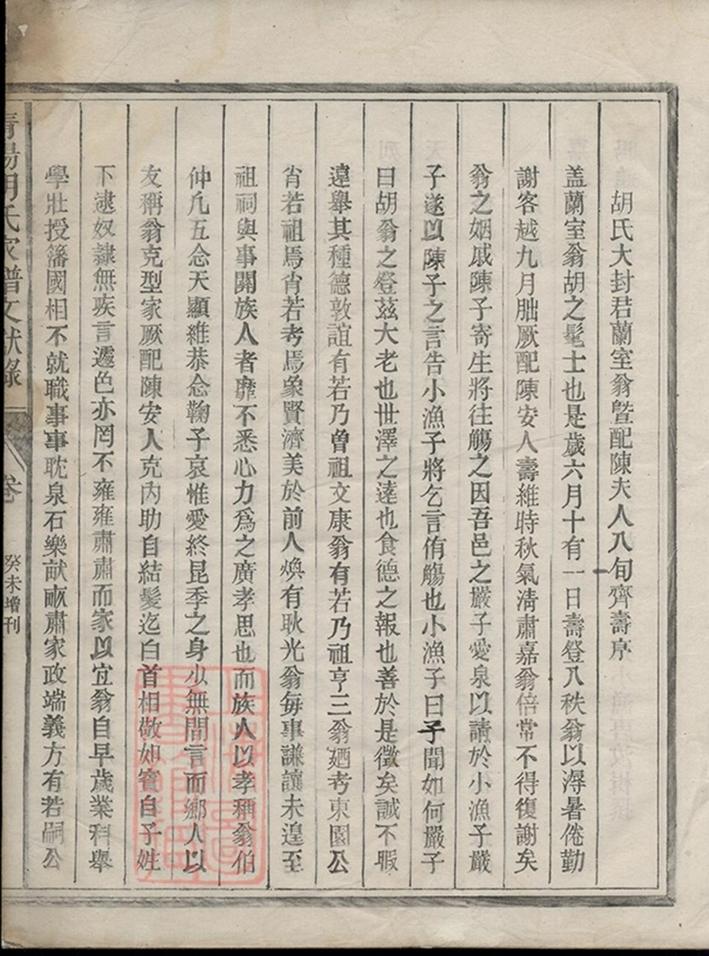 胡氏大封君蘭室翁曁配陳夫人八旬齊壽序
盖蘭室翁胡之髦士也是歲六月十有一日壽登八秩翁以溽暑倦勤
謝客越九月朏厥配陳安人壽維時秋氣淸肅嘉翁倍常不得復謝矣
翁之姻戚陳子寄生將往觴之因吾邑之嚴子愛泉以請於小漁子嚴
子遂以陳子之言告小漁子將乞言侑觴也小漁子曰子聞如何嚴子
曰胡翁之登茲大老也世澤之逹也食德之報也善於是徵矣誠不暇
遠舉其種德敦誼有若乃曾祖文康翁有若乃祖亨三翁廼考東園公
肖若祖焉肖若考焉象賢濟美於前人煥有耿光翁每事謙讓未遑至
祖祠與事關族人者靡不悉心力爲之廣孝思也而族人以孝稱翁伯
仲凢五念天顯維恭念鞠子哀惟愛終昆季之身少無間言而鄉人以
友稱翁克型家厥配陳安人克內助自結髮迄白首相敬如賓自子姓
下逮奴隸無疾言遽色亦罔不雍雍肅肅而家以宜翁自早歲業科舉
學壯授籓國相不就職事事耽泉石樂猷畝肅家政端義方有若嗣公
靑陽胡氏家譜文獻錄
卷
癸未增刊